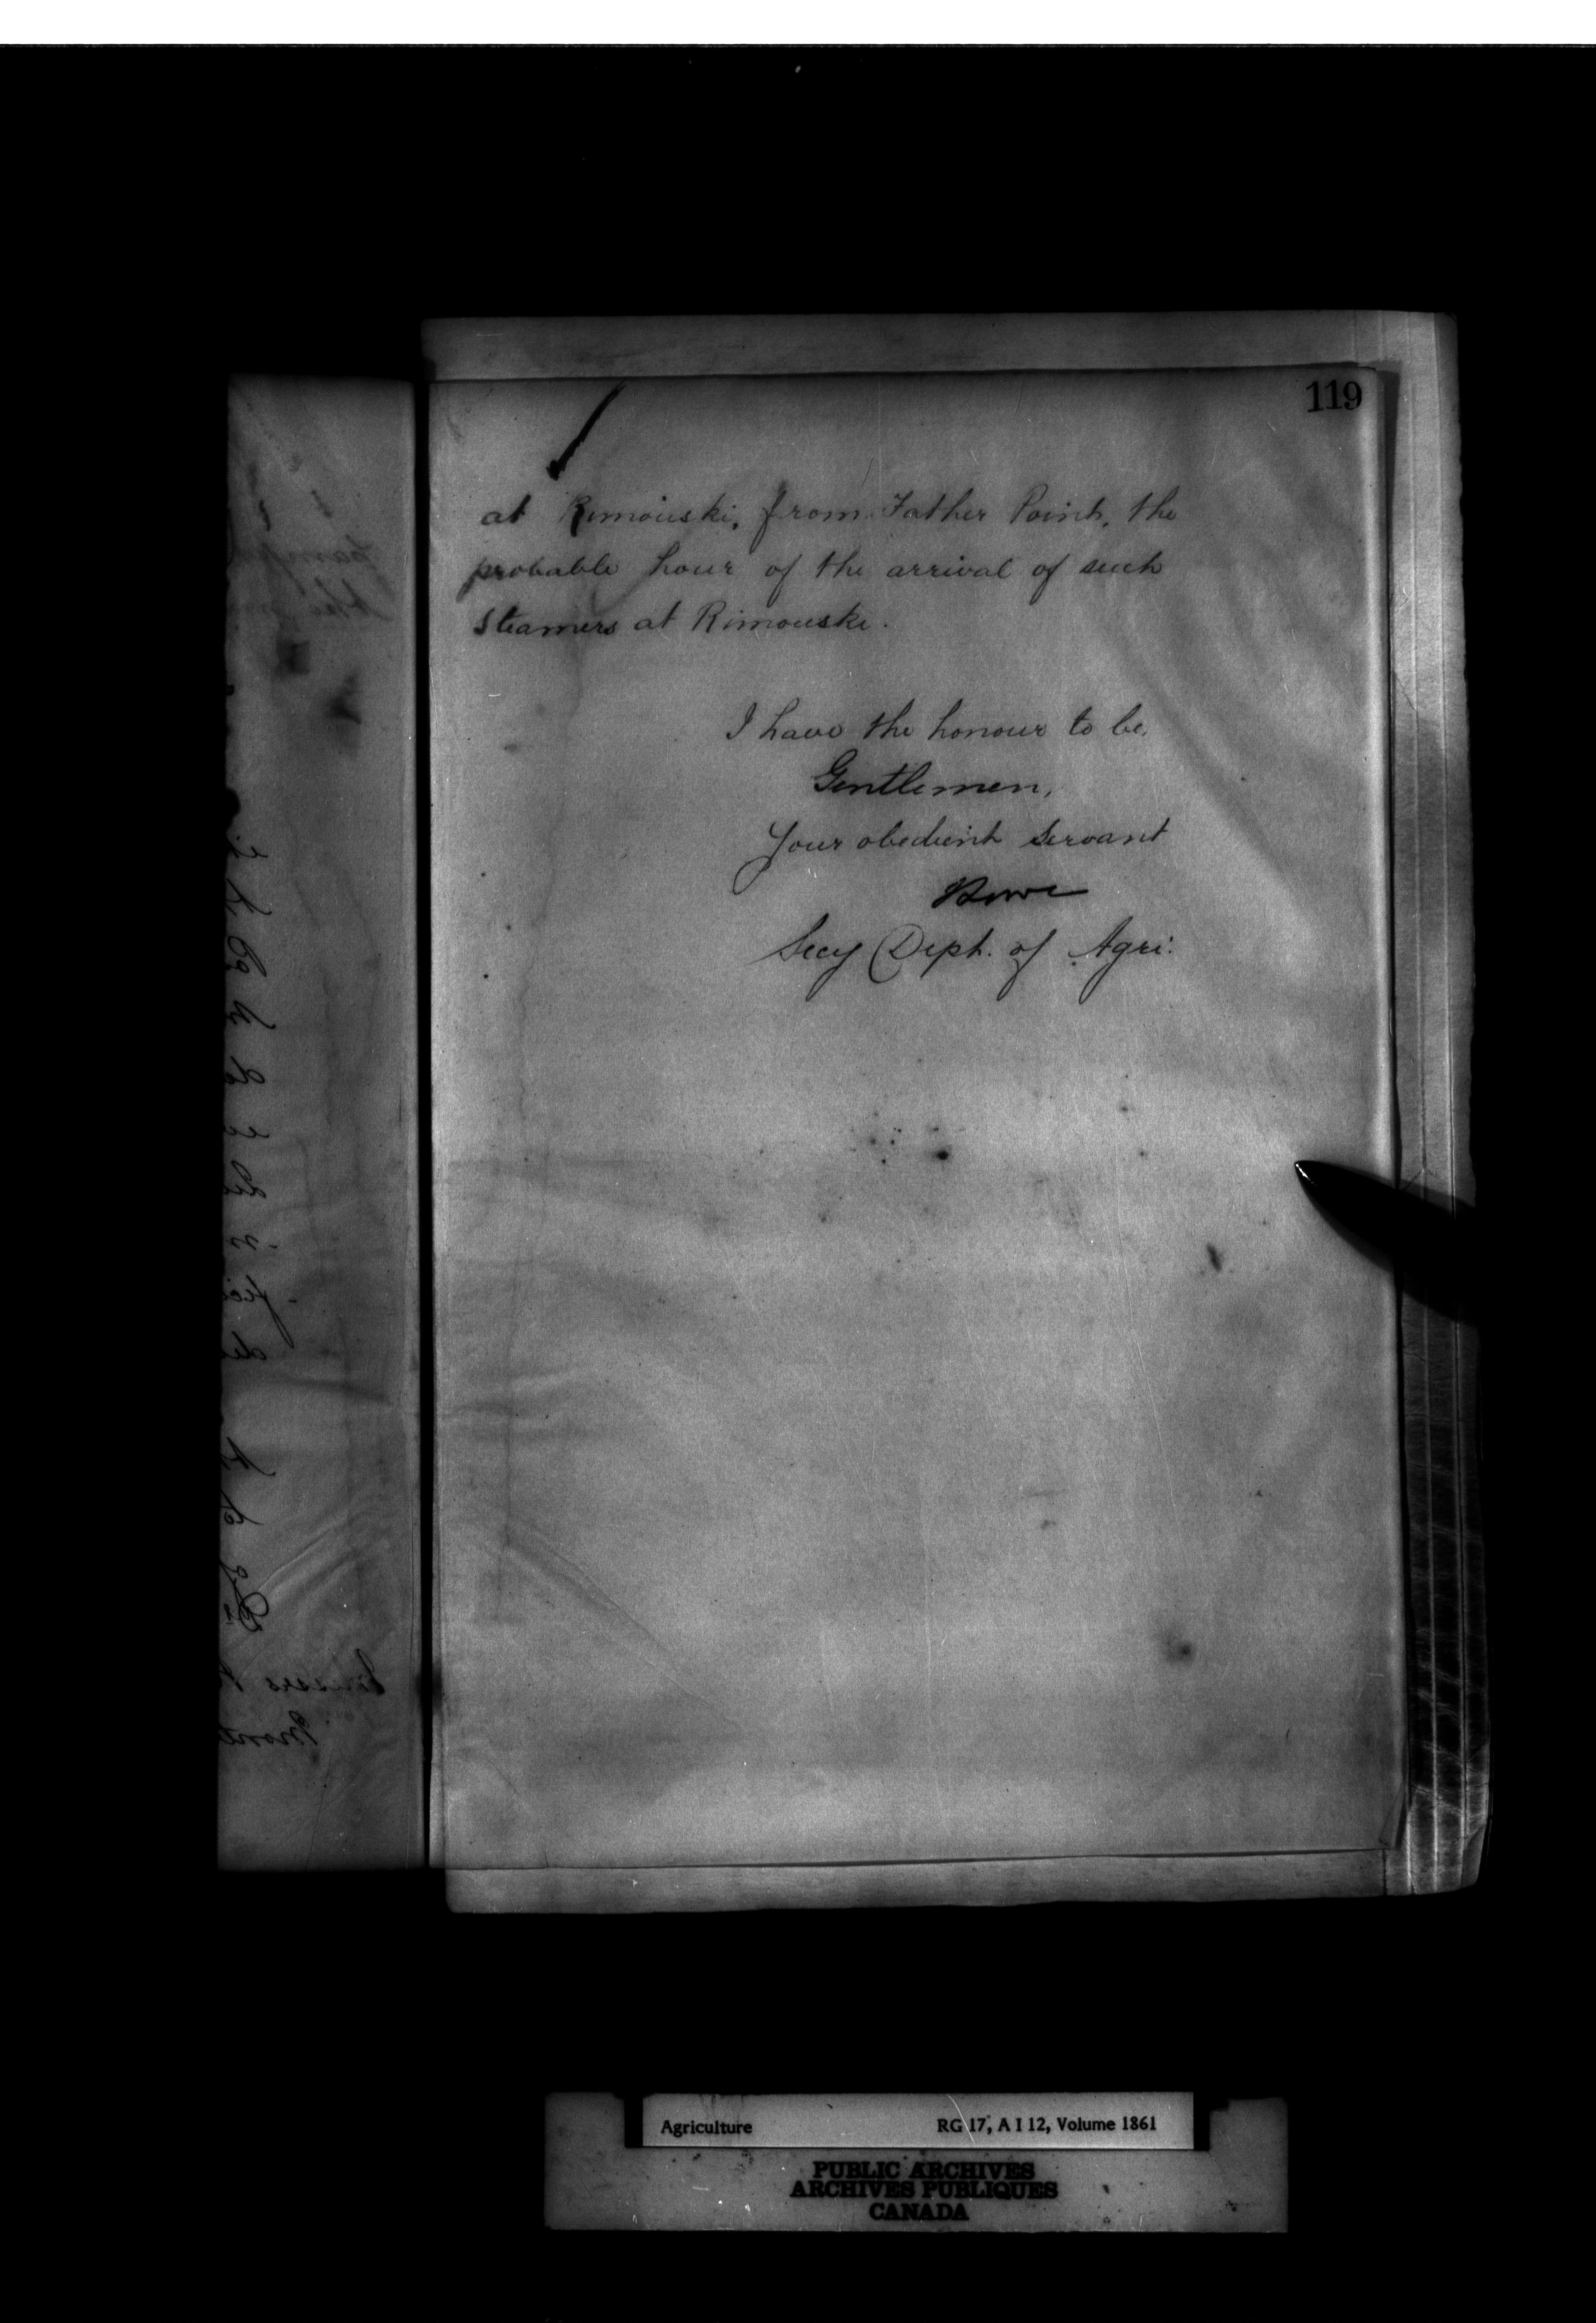 119
at Rimouski, from Father Point, the
probable hour of the arrival of such
Steamers at Rimouski.
I have the honour to be,
Gentlemen,
Your obedient Servant
Secy Dept. of Agri.
Agriculture RG 17, A I 12, Volume 1861
PUBLIC ARCHIVES
ARCHIVES PUBLIQUES
CANADA